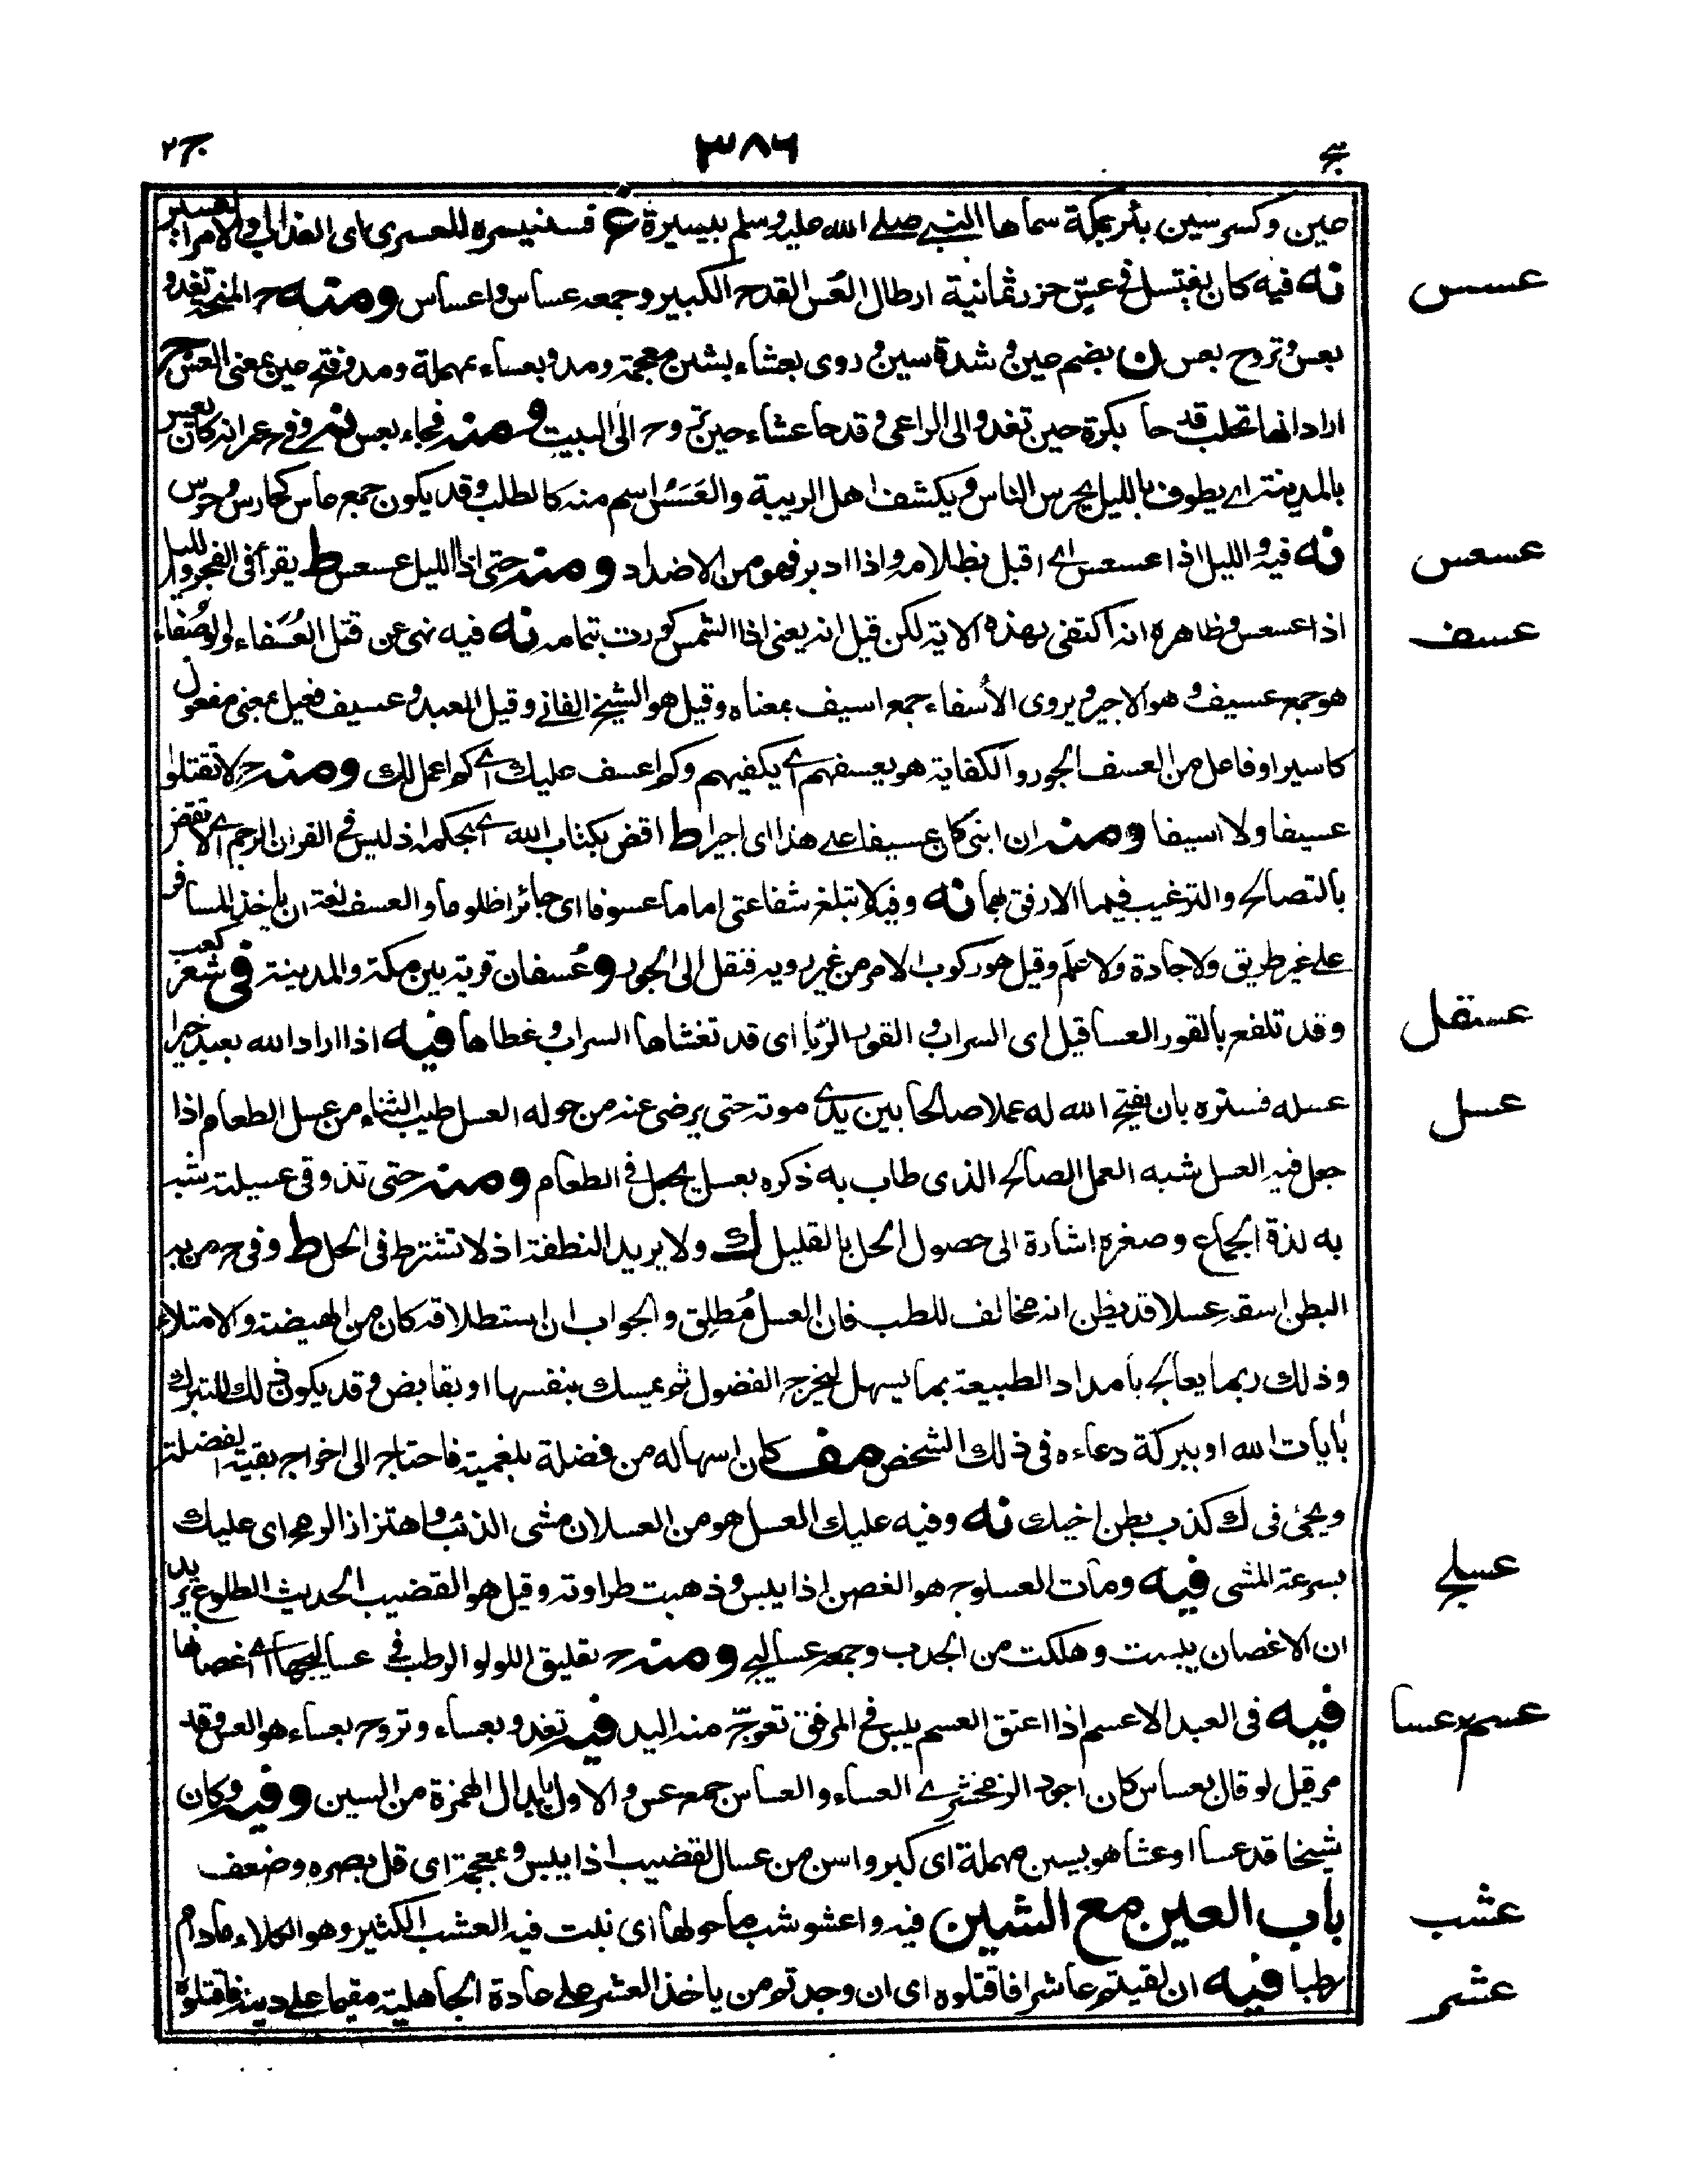 ج٢
٣٨٦
عين وكسر سين بئر بمكة سماها النبي صلى الله عليه وسلم بيسيرة غ فسنيسره للعسرى اى العذاب والامر العسير
عسس
نه فيه كان يغتسل في عسّ حزر ثمانية ارطال العُس القدح الكبير وجمعه عساس واعساس ومنه ح المنحة تغدو
بعس وتروح بعس ن بضم عين وشدة سين وروى بعشاء بشين معجمة ومد وبعساء بمهملة ومد وفتح عين بمعنى العس ج
اراد انها تحلب قدحا بكرة حين تغدو الى الراعى وقدحا عشاء حين تروح الى البيت ومنه فجاء بعس نه وفي ح عمر انه كان يعس
بالمدينة اے يطوف بالليل يحرس الناس ويكشف اهل الريبة والعَسَس اسم منه كالطلب وقد يكون جمع عاس كحارس وحرس
عسعس
نه فيه والليل اذا عسعس اے اقبل بظلامه واذا ادبر فهو من الاضداد ومنه حتى اذا الليل عسعس ط يقرأ فى الفجر والليل
عسف
اذا عسعس وظاهره انه اكتفى بهذه الاية لكن قيل انه يعنى اذا الشمس كورت بتمامه نه فيه نهى عن قتل العُسَفاء والوُصَفاء
هو جمع عسيف وهو الاجير ويروى الأسفاء جمع اسيف بمعناه وقيل هو الشيخ الفانے وقيل العبد وعسيف فعيل بمعنى مفعول
كاسير او فاعل من العسف الجور والكفاية هو يعسفهم اے يكفيهم وكم اعسف عليك اے كم اعمل لك ومنه ح لا تقتلوا
عسيفا ولا اسيفا ومنه ان ابنى كان عسيفا على هذا اى اجيرا ط اقض بكتاب الله اے بحكمه اذ ليس في القران الرجم اے لا تقض
بالتصالح والترغيب فيما الارفق بهما نه وفيه لا تبلغ شفاعتى اماما عسوفا اى جائرا ظلوما والعسف لغة ان ياخذ المسافر
على غير طريق ولا جادة ولا علَم وقيل هو ركوب الامر من غير روية فنقل الى الجور وعُسفان قرية بين مكة والمدينة فى شعر كعب
عسقل
وقد تلفع بالقور العساقيل اى السراب والقور الرُبا اى قد تغشاها السراب وغطاها فيه اذا اراد الله بعبد خيرا
عسل
عسله فستره بان يفتح الله له عملا صالحا بين يدے موته حتى يرضى عنه من حوله العسل طيب الثناء من عسل الطعام اذا
جعل فيه العسل شبه العمل الصالح الذى طاب به ذكره بعسل يجعل في الطعام ومنه حتى تذوقى عسيلته شبه
به لذة الجماع وصغره اشارة الى حصول الحل بالقليل ك ولا يريد النطفة اذ لا تشترط فى الحل ط وفى ح من به
البطن اسقه عسلا قد يظن انه مخالف للطب فان العسل مُطلِق والجواب ان استطلاقه كان من الهيضة والامتلاء
وذلك ربما يعالج بامداد الطبيعة بما يسهل ليخرج الفضول ثم يمسك بنفسها او بقابض وقد يكون ذلك للتبرك
بايات الله او ببركة دعاءه فى ذلك الشخص مف كان اسهاله من فضلة بلغمية فاحتاج الى اخراج بقية الفضلة
ويجئ فى ك كذب بطن اخيك نه وفيه عليك العسل هو من العسلان مشى الذئب واهتزاز الرمح اى عليك
عسلج
بسرعة المشى فيه ومات العسلوج هو الغصن اذا يبس وذهبت طراوته وقيل هو القضيب الحديث الطلوع يريد
ان الاغصان يبست وهلكت من الجدب وجمعه عساليج ومنه ح تعليق اللولو الرطب في عساليجها اے اغصانها
عسم عسا
فيه فى العبد الاعسم اذا اعتق العسم يبس في المرفق تعوجّ منه اليد فيه تغدو بعساء وتروح بعساء هو العس وقد
مر قيل لو قال بعساس كان اجود الزمخشرے العساء والعساس جمع عس والاول بابدال الهمزة من السين وفيه وكان
شيخا قد عسا او عشا هو بسين مهملة اى كبر واسن من عسا القضيب اذا يبس وبمعجمة اى قل بصره وضعف
عشب
باب العين مع الشين فيه واعشوشب ما حولها اى نبت فيه العشب الكثير وهو الكلاء مادام
عشر
رطبا فيه ان لقيتم عاشرا فاقتلوه اى ان وجدتم من ياخذ العشر على عادة الجاهلية مقيما على دينه فاقتلوه